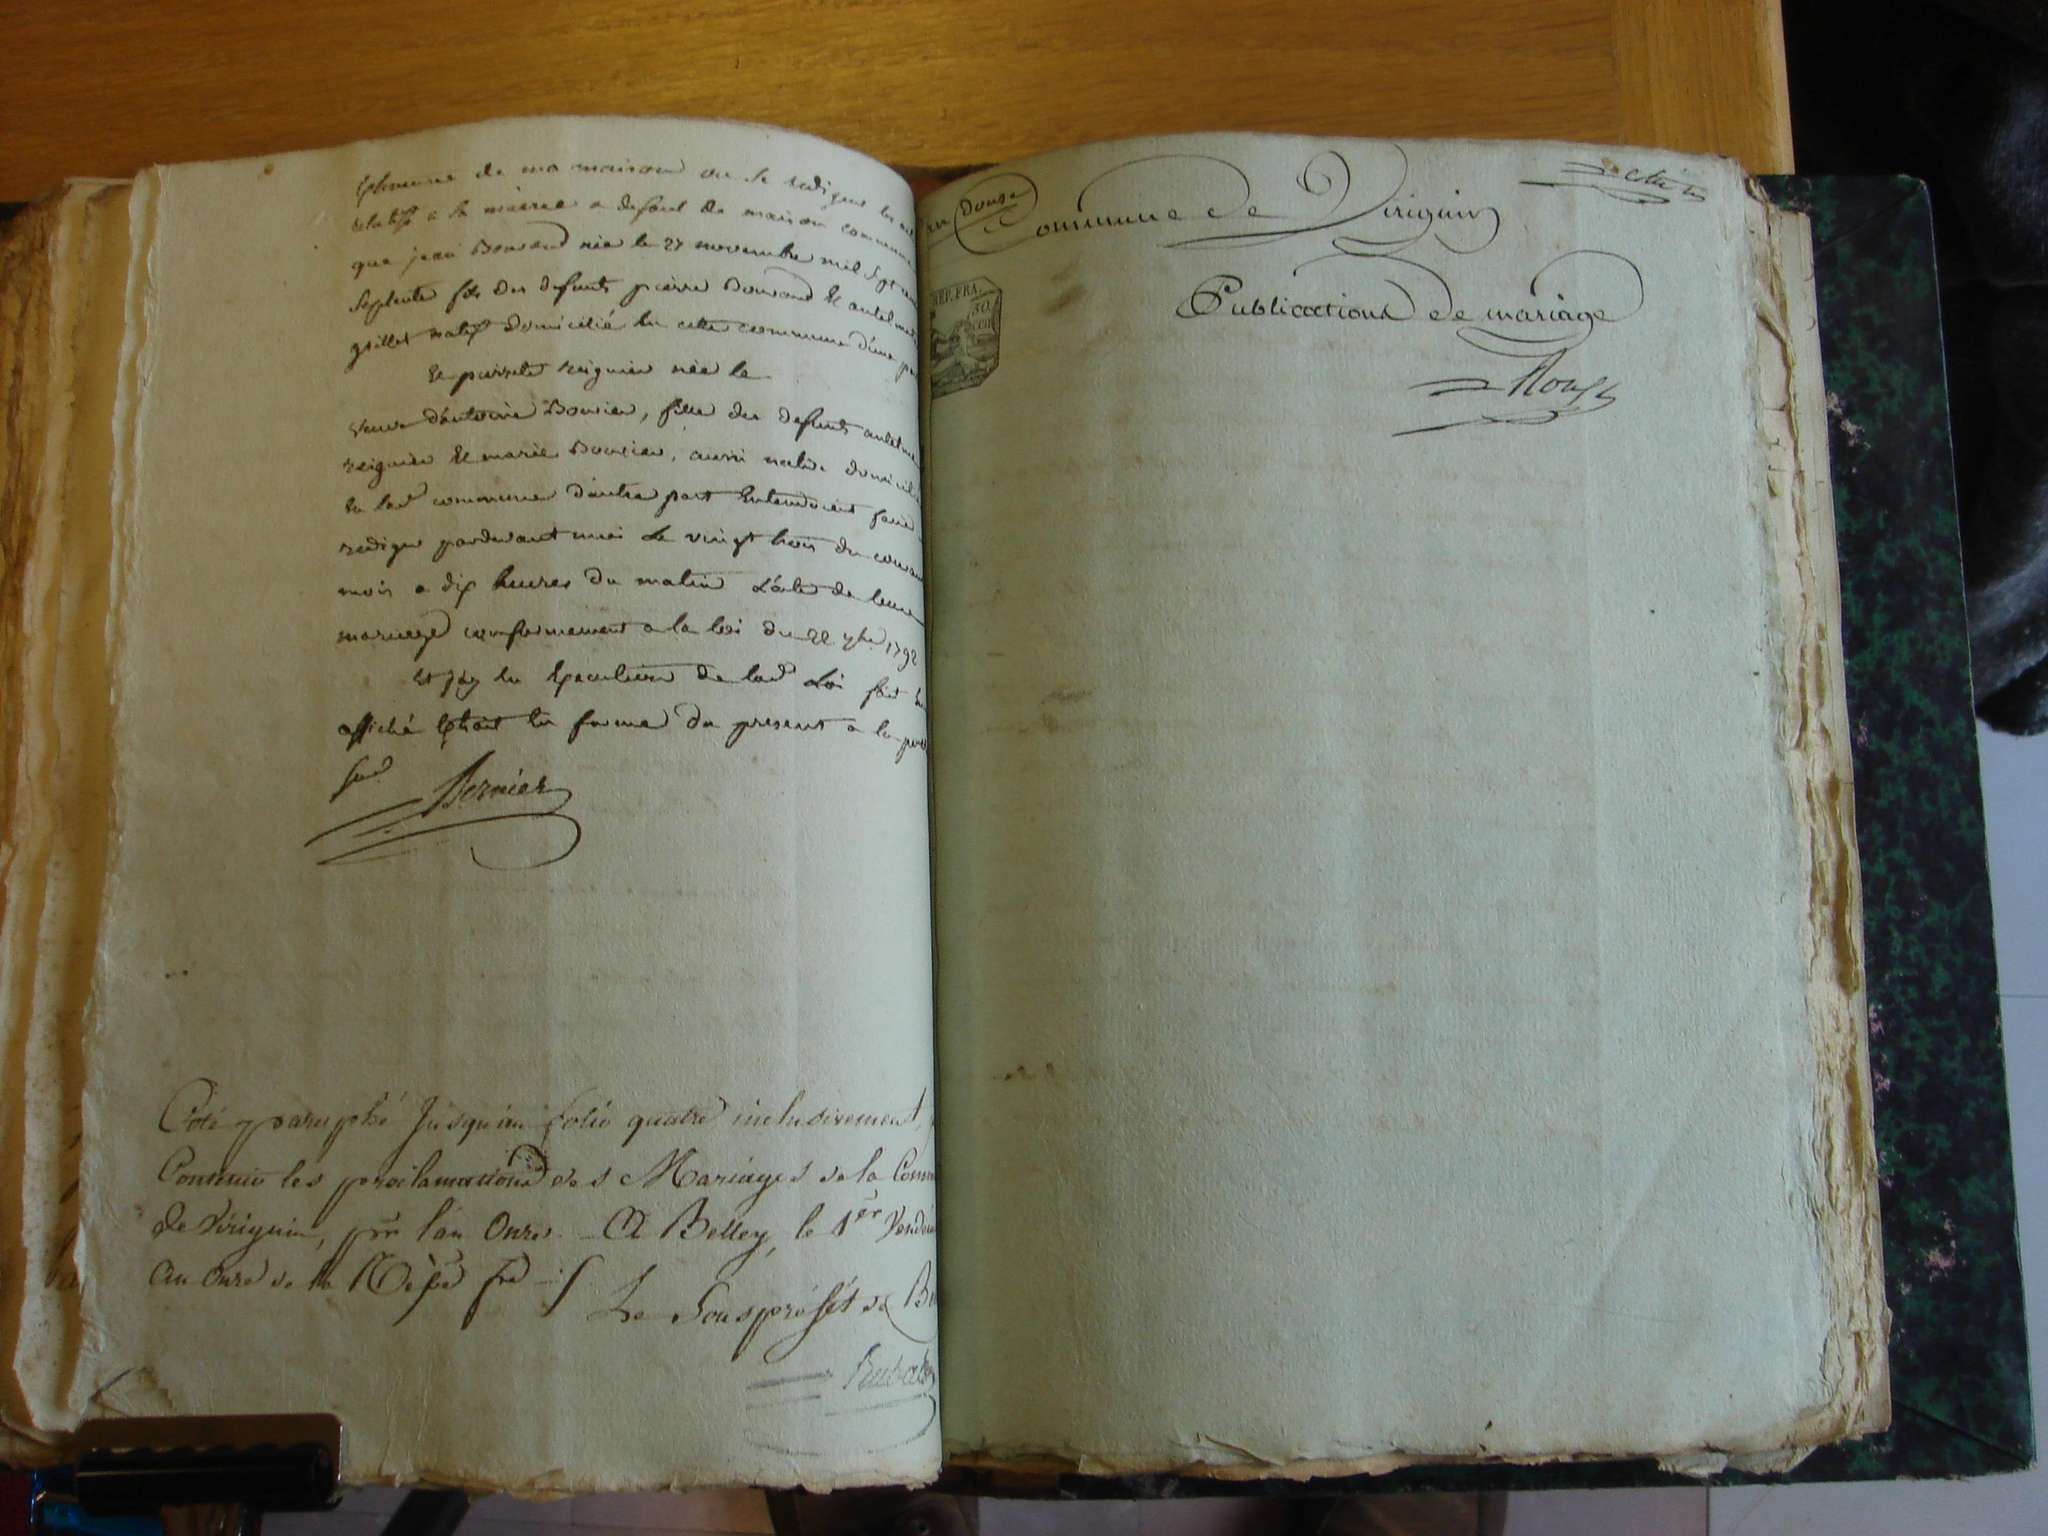 de ma maison ou se redigent les
a la mairie a defaut de maison commune
que jean Bouvand née le 27 novembre mil sept cent
septente fils des defunts pierre Bouvand et antelmette
guillet natif domicilié en cette commune d'une part
et pierrette reignier née le
veuve d'antoine Bouvier, fille des defunts antelme
reignier et marie Bouvier, aussi native domiciliée
en lad commune d'autre part entendoient faire
rediger pardevant moi le vingt trois du courant
mois a dix heures du matin l'acte de leur
mariage conformement a la loi du 22 7bre 1792
et j'ay en execution de lad loi fait
affiché extrait en forme du present a la porte
sud.
Bernier
Coté et paraphé jusqu'au folio quatre inclusivement,
Contenir les proclamations des Mariages de la Comm
de Virignin, pr l'an Onze. A Belley, le 1er Vendém
an Onze de la Rép fre
Le Sous préfet de B
an douze
Commune de Virignin
REP. FRA.
50
CEN
Publications de mariage